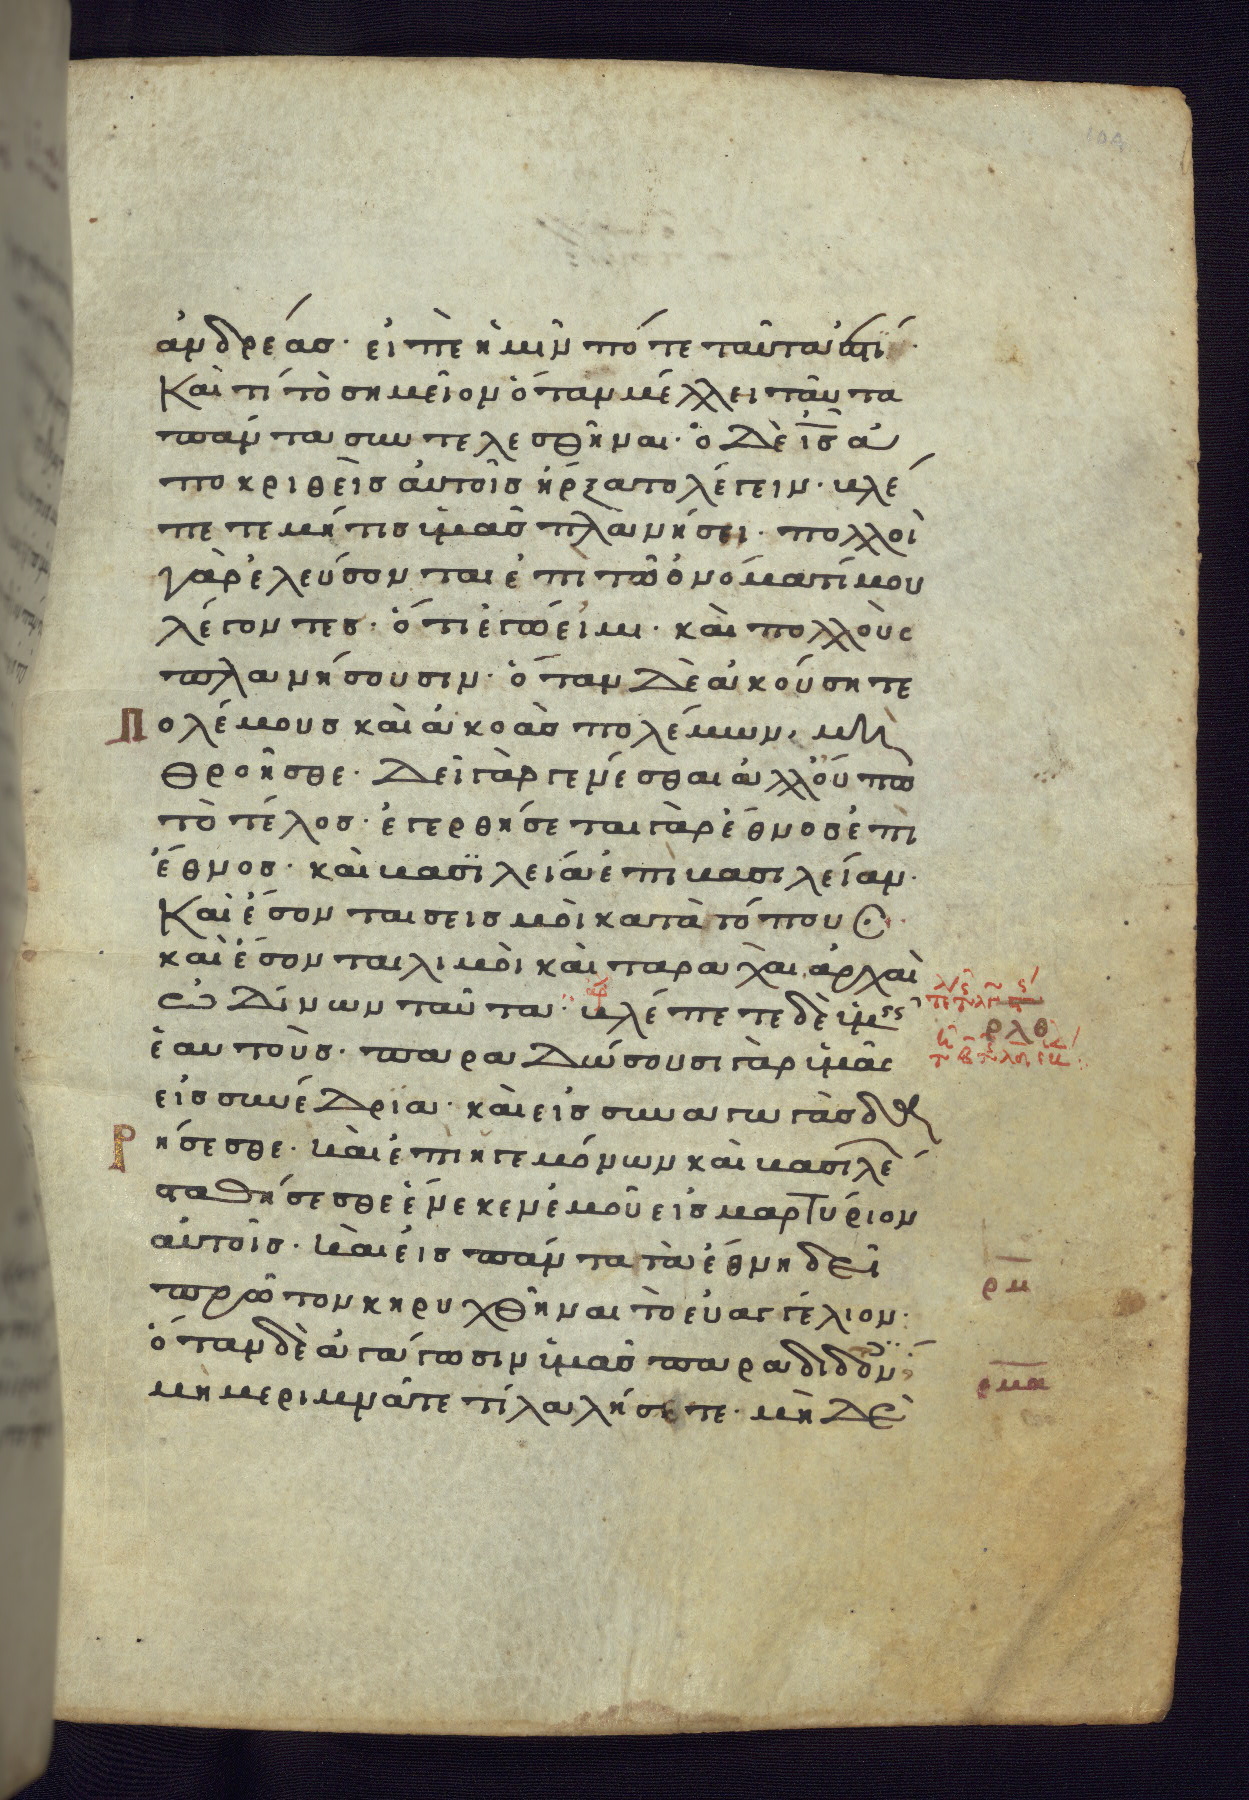 ἀνδρέασ· εἰπὲ ἡμῖν πότε ταῦτα ἔσται·
Καὶ τί τὸ σημεῖον ὅταν μέλλει ταῦτα
πάντα συντελεσθῆναι· ὁ δὲ ισ ἀ
ποκριθεὶσ αὐτοῖσ ἤρξατο λέγειν· βλέ
πετε μή τισ ὑμᾶσ πλανήσει· πολλοὶ
γὰρ ἐλεύσονται ἐπὶ τῶ ὀνόματί μου
λέγοντεσ· ὅτι ἐγώ εἰμι· καὶ πολλοὺσ
πλανήσουσιν· ὅταν δὲ ἀκούσητε
Πολέμουσ καὶ ἀκοὰσ πολέμων, μὴ
θροῆσθε· δεῖ γὰρ γενέσθαι ἀλλ οὔπω
τὸ τέλοσ· ἐγερθήσεται γὰρ ἔθνοσ ἐπὶ
ἔθνοσ· καὶ βασϊλεία ἐπὶ βασιλείαν·
Καὶ ἔσονται σεισμοὶ κατὰ τόπουσ·
καὶ ἔσονται λιμοὶ καὶ ταραχαὶ, ἀρχαὶ
ὠδίνων ταῦτα· βλέπετε δὲ ὑμεῖσ
ἑαυτοὺσ· παραδώσουσι γὰρ ὑμᾶσ
εἰσ συνέδρϊα· καὶ εἰσ συναγωγὰσ δα
Ρήσεσθε· καὶ ἐπὶ ἡγεμόνων καὶ βασιλέ
σταθήσεσθε ἕνεκεν ἐμοῦ εἰσ μαρτύριον
αὐτοῖσ· καὶ εἰσ πάντα τὰ ἔθνη δεῖ
πρῶτον κηρυχθῆναι τὸ εὐαγγέλιον·
ὅταν δὲ ἀγάγωσιν ὑμᾶσ παραδιδόν
μὴ μεριμνᾶτε τί λαλήσετε· μὴ δὲ
ρλθ
ρμ
ρμα